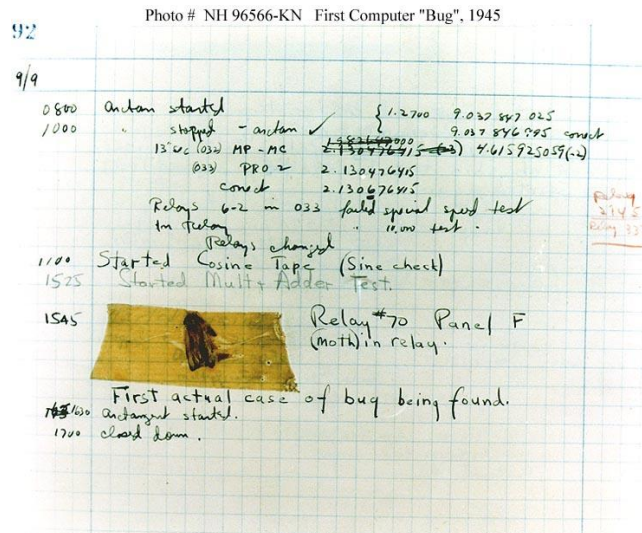 Photo # NH 96566-KN First Computer "Bug", 1945
92
9/9
0800 arctan started
1000 " stopped - arctan ✓
{ 1.2700 9.037 847 025
9.037 846 795 correct
13" UC (032) MP - MC 2.130476415 4.615925059(-2)
(033) PRO 2 2.130476415
correct 2.130676415
Relays 6-2 in 033 failed special speed test
In Relay " 10,000 test.
Relays changed
Relay
2145
Relay 337
1100 Started Cosine Tape (Sine check)
1525 Started Mult+Adder Test.
1545 Relay #70 Panel F
(moth) in relay.
First actual case of bug being found.
1630 arctangent started.
1700 closed down.